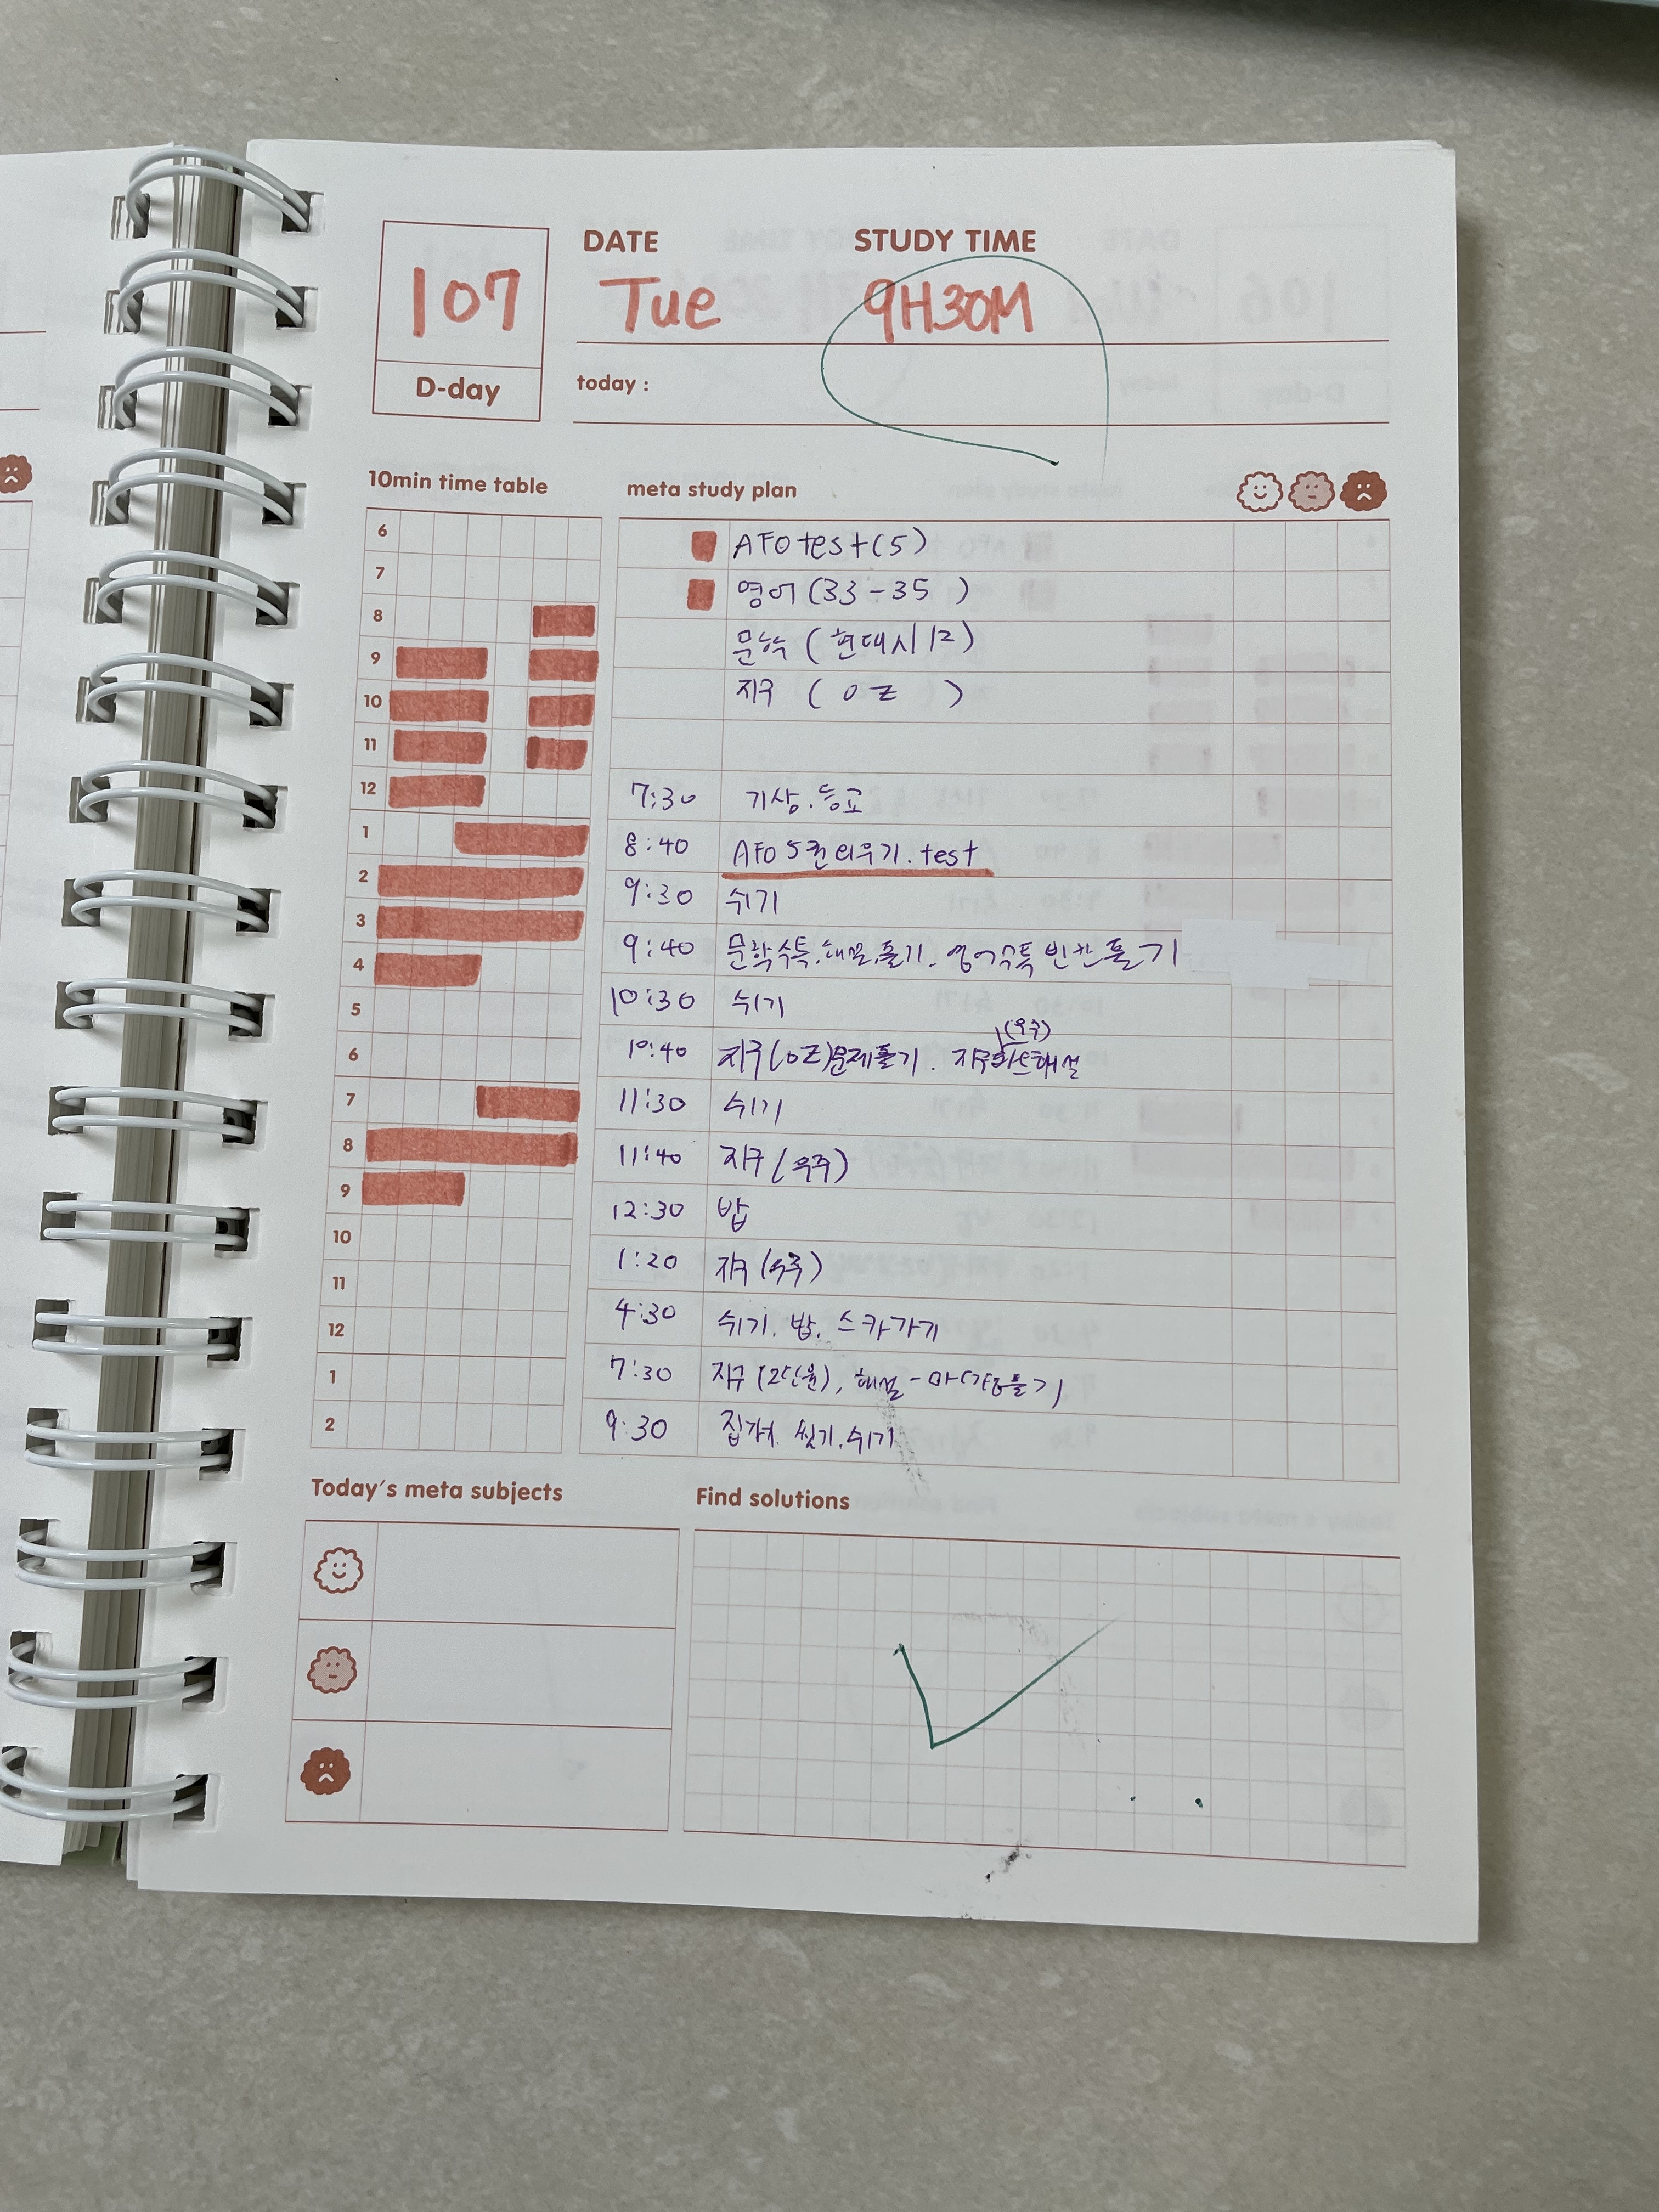 DATE STUDY TIME
107 Tue 9H30M
D-day today :
10min time table meta study plan
6
7
8
9
10
11
12
1
2
3
4
5
6
7
8
9
10
11
12
1
2
AFO test(5)
영어 (33-35 )
문학 ( 현대시 12)
지구 ( OZ )
7:30 기상. 등교
8:40 AFO 5권 외우기. test
9:30 쉬기
9:40 문학수특. 해설. 풀기. 영어수특 빈칸 풀기
10:30 쉬기
(우주)
10:40 지구(OZ)문제풀기. 지구 해설
11:30 쉬기
11:40 지구 (우주)
12:30 밥
1:20 지구 (우주)
4:30 쉬기. 밥. 스카가기
7:30 지구 (2단원), 해설-
9:30 집가서. 씻기. 쉬기
Today's meta subjects Find solutions